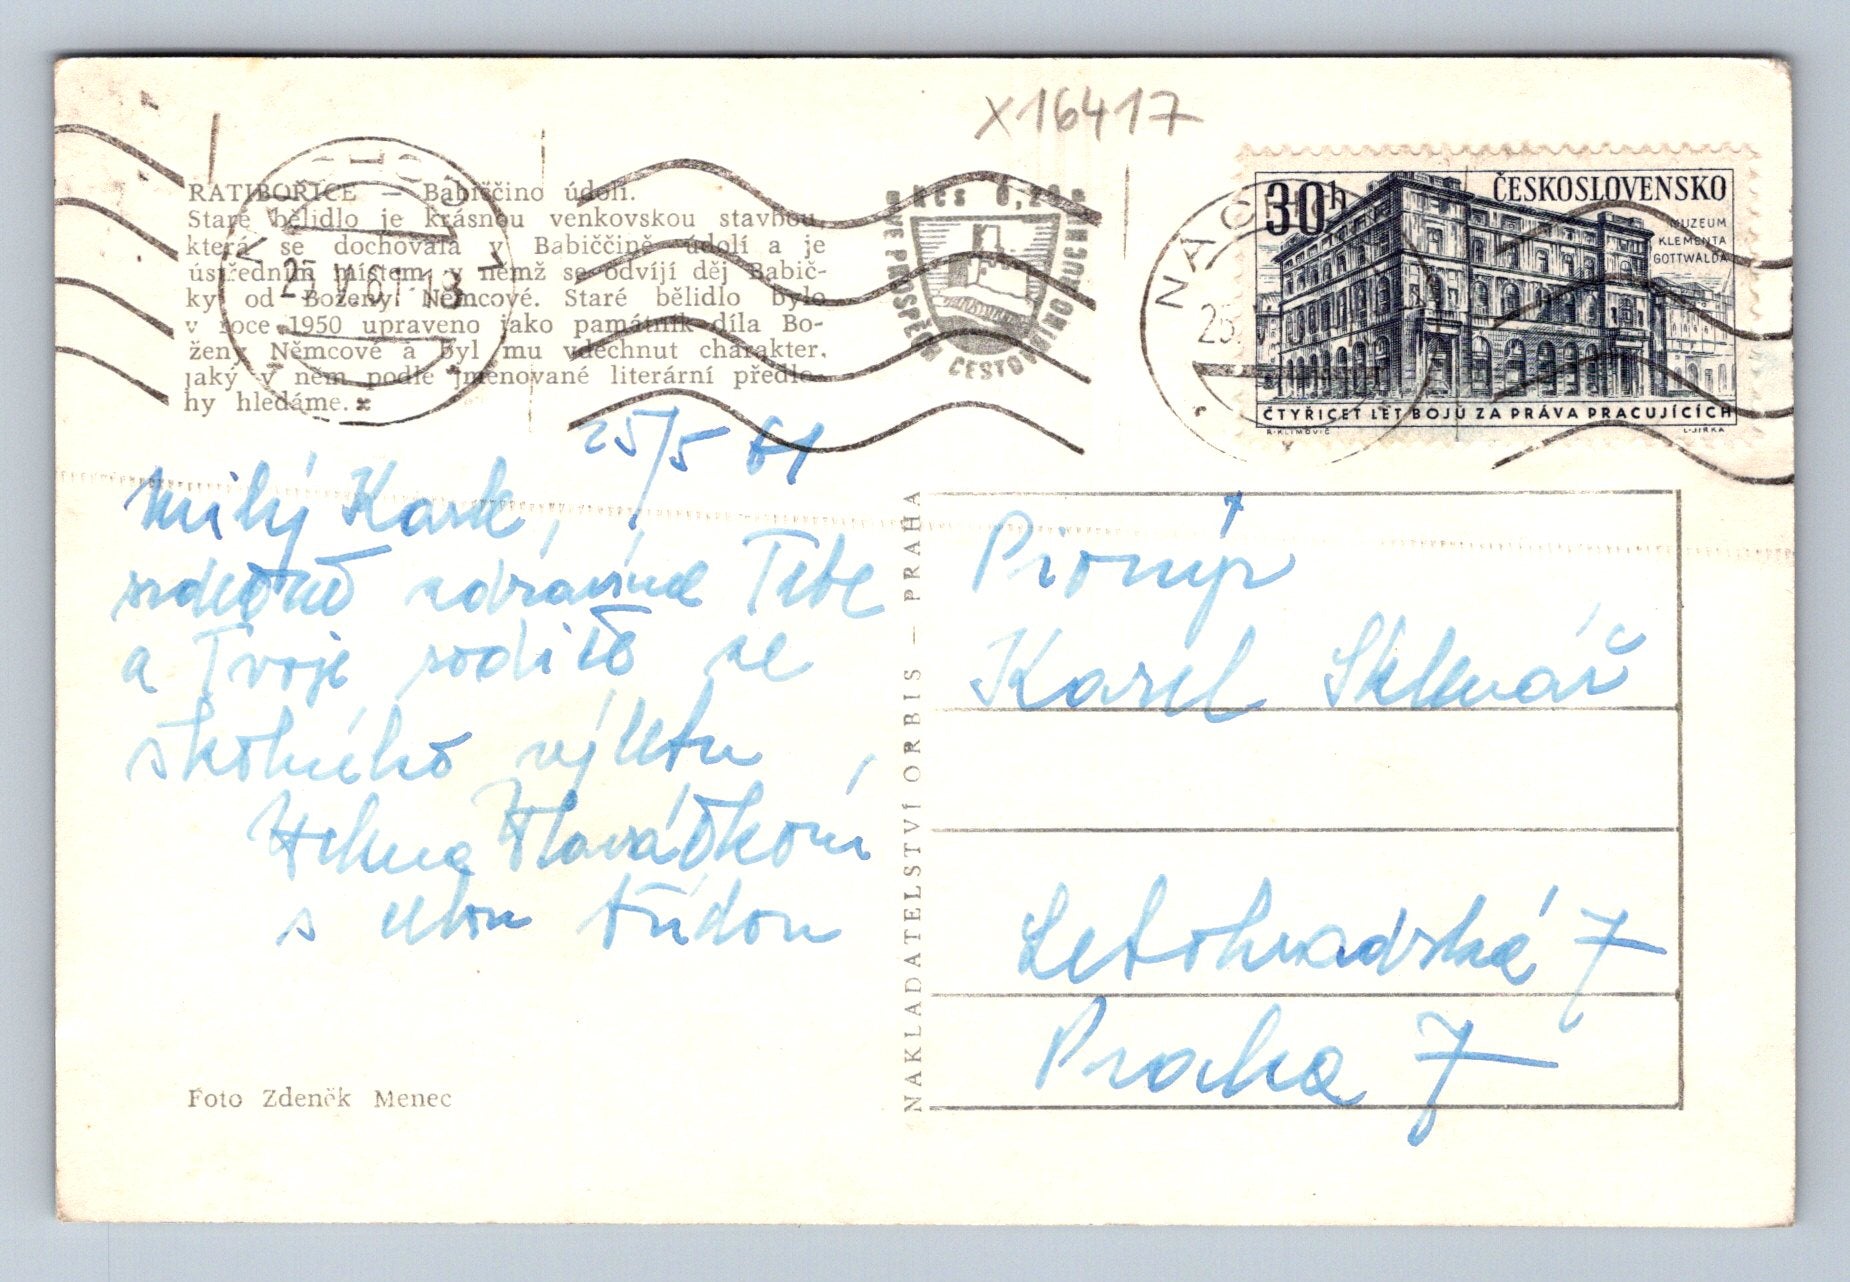 x16417
RATIBOŘICE — Babiččino údolí.
Staré bělidlo je krásnou venkovskou stavbou,
která se dochovala v Babiččině údolí a je
ústředním místem, v němž se odvíjí děj Babič-
ky od Boženy Němcové. Staré bělidlo bylo
v roce 1950 upraveno jako památník díla Bo-
ženy Němcové a byl mu vdechnut charakter,
jaký v něm podle jmenované literární předlo-
hy hledáme.
25.V.61-18
Kčs 0,20
VE PROSPĚCH CESTOVNÍHO RUCHU
NÁCHOD
30h
ČESKOSLOVENSKO
MUZEUM
KLEMENTA
GOTTWALDA
ČTYŘICET LET BOJŮ ZA PRÁVA PRACUJÍCÍCH
R. KLIMOVIČ
L. JIRKA
25/5 61
Milý Karle,
srdečně zdravíme Tebe
a Tvoje rodiče ze
školního výletu
Helena Hlaváčková
s celou třídou
Foto Zdeněk Menec
NAKLADATELSTVÍ ORBIS — PRAHA
Pionýr
Karel Sklenář
Letohradská 7
Praha 7